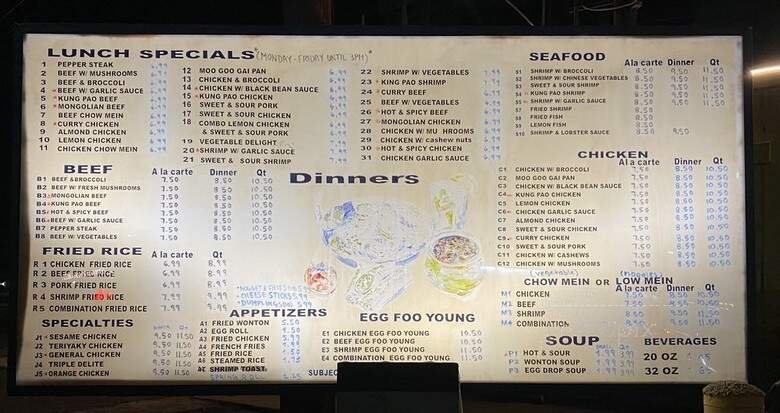 LUNCH SPECIALS *(MONDAY-FRIDAY UNTIL 3PM)*
1 PEPPER STEAK 6.99
2 BEEF W/ MUSHROOMS 6.99
3 BEEF & BROCCOLI 6.99
4 BEEF W/ GARLIC SAUCE 6.99
5 KUNG PAO BEEF 6.99
6 MONGOLIAN BEEF 6.99
7 BEEF CHOW MEIN 6.99
8 CURRY CHICKEN 6.99
9 ALMOND CHICKEN 6.99
10 LEMON CHICKEN 6.99
11 CHICKEN CHOW MEIN 6.99
12 MOO GOO GAI PAN 6.99
13 CHICKEN & BROCCOLI 6.99
14 CHICKEN W/ BLACK BEAN SAUCE 6.99
15 KUNG PAO CHICKEN 6.99
16 SWEET & SOUR PORK 6.99
17 SWEET & SOUR CHICKEN 6.99
18 COMBO LEMON CHICKEN 6.99
& SWEET & SOUR PORK
19 VEGETABLE DELIGHT 6.99
20 SHRIMP W/ GARLIC SAUCE
21 SWEET & SOUR SHRIMP 7.99
22 SHRIMP W/ VEGETABLES 7.99
23 KING PAO SHRIMP
24 CURRY BEEF 6.99
25 BEEF W/ VEGETABLES 6.99
26 HOT & SPICY BEEF 6.99
27 MONGOLIAN CHICKEN 6.99
28 CHICKEN W/ MU HROOMS 6.99
29 CHICKEN W/ cashew nuts 6.99
30 HOT & SPICY CHICKEN 6.99
31 CHICKEN GARLIC SAUCE 6.99
SEAFOOD
A la carte Dinner Qt
S1 SHRIMP W/ BROCCOLI 8.50 9.50 11.50
S2 SHRIMP W/ CHINESE VEGETABLES 8.50 9.50 11.50
S3 SWEET & SOUR SHRIMP 8.50 9.50 11.50
S4 KUNG PAO SHRIMP 8.50 9.50 11.50
S5 SHRIMP W/ GARLIC SAUCE 8.50 9.50 11.50
S7 FRIED SHRIMP 8.50
S8 FRIED FISH 8.50
S9 LEMON FISH 8.50
S10 SHRIMP & LOBSTER SAUCE 8.50 9.50
BEEF
A la carte Dinner Qt
B1 BEEF & BROCCOLI 7.50 8.50 10.50
B2 BEEF W/ FRESH MUSHROOMS 7.50 8.50 10.50
B3 MONGOLIAN BEEF 7.50 8.50 10.50
B4 KUNG PAO BEEF 7.50 8.50 10.50
B5 HOT & SPICY BEEF 7.50 8.50 10.50
B6 BEEF W/ GARLIC SAUCE 7.50 8.50 10.50
B7 PEPPER STEAK 7.50 8.50 10.50
B8 BEEF W/ VEGETABLES 7.50 8.50 10.50
Dinners
CHICKEN
A la carte Dinner Qt
C1 CHICKEN W/ BROCCOLI 7.50 8.50 10.50
C2 MOO GOO GAI PAN 7.50 8.50 10.50
C3 CHICKEN W/ BLACK BEAN SAUCE 7.50 8.50 10.50
C4 KUNG PAO CHICKEN 7.50 8.50 10.50
LEMON CHICKEN 7.50 8.50 10.50
C6 CHICKEN GARLIC SAUCE 7.50 8.50 10.50
C7 ALMOND CHICKEN 7.50 8.50 10.50
C8 SWEET & SOUR CHICKEN 7.50 8.50 10.50
C9 CURRY CHICKEN 7.50 8.50 10.50
C10 SWEET & SOUR PORK 7.50 8.50 10.50
C11 CHICKEN W/ CASHEWS 7.50 8.50 10.50
C12 CHICKEN W/ MUSHROOMS 7.50 8.50 10.50
FRIED RICE
A la carte Qt
R 1 CHICKEN FRIED RICE 6.99 8.99
R 2 BEEF FRIED RICE 6.99 8.99
R 3 PORK FRIED RICE 6.99 8.99
R 4 SHRIMP FRIED RICE 7.99 9.99
R 5 COMBINATION FRIED RICE 7.99 9.99
(vegetable) (noodles)
CHOW MEIN OR LOW MEIN
A la carte Dinner Qt
M1 CHICKEN 7.50 8.50 10.50
M2 BEEF 7.50 8.50 10.50
M3 SHRIMP 8.50 9.50 11.50
M4 COMBINATION 8.50 9.50 11.50
SPECIALTIES
J1 SESAME CHICKEN 9.50 11.50
J2 TERIYAKY CHICKEN 9.50 11.50
J3 GENERAL CHICKEN 9.50 11.50
J4 TRIPLE DELITE 9.50 11.50
J5 ORANGE CHICKEN 9.50 11.50
CHEESE STICKS 5.99
APPETIZERS
A1 FRIED WONTON 5.50
A2 EGG ROLL
A3 FRIED CHICKEN
A4 FRENCH FRIES
A5 FRIED RICE
A6 STEAMED RICE
A7 SHRIMP TOAST
SPRING ROLL 2.25
EGG FOO YOUNG
E1 CHICKEN EGG FOO YOUNG 10.50
E2 BEEF EGG FOO YOUNG 10.50
E3 SHRIMP EGG FOO YOUNG 11.50
E4 COMBINATION EGG FOO YOUNG 11.50
SUBJEC
SOUP
P1 HOT & SOUR 1.99 3.99
P2 WONTON SOUP 1.99 3.99
P3 EGG DROP SOUP 1.99 3.99
BEVERAGES
20 OZ
32 OZ